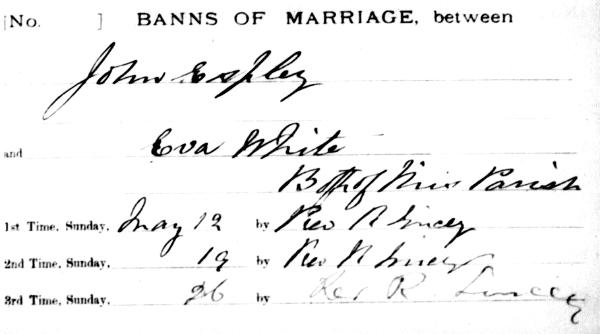 [No. ] BANNS OF MARRIAGE, between
John Espley
and Eva White
Both of this Parish
1st Time, Sunday, May 12 by Rev R
2nd Time, Sunday, 19 by Rev R
3rd Time, Sunday, 26 by Rev R